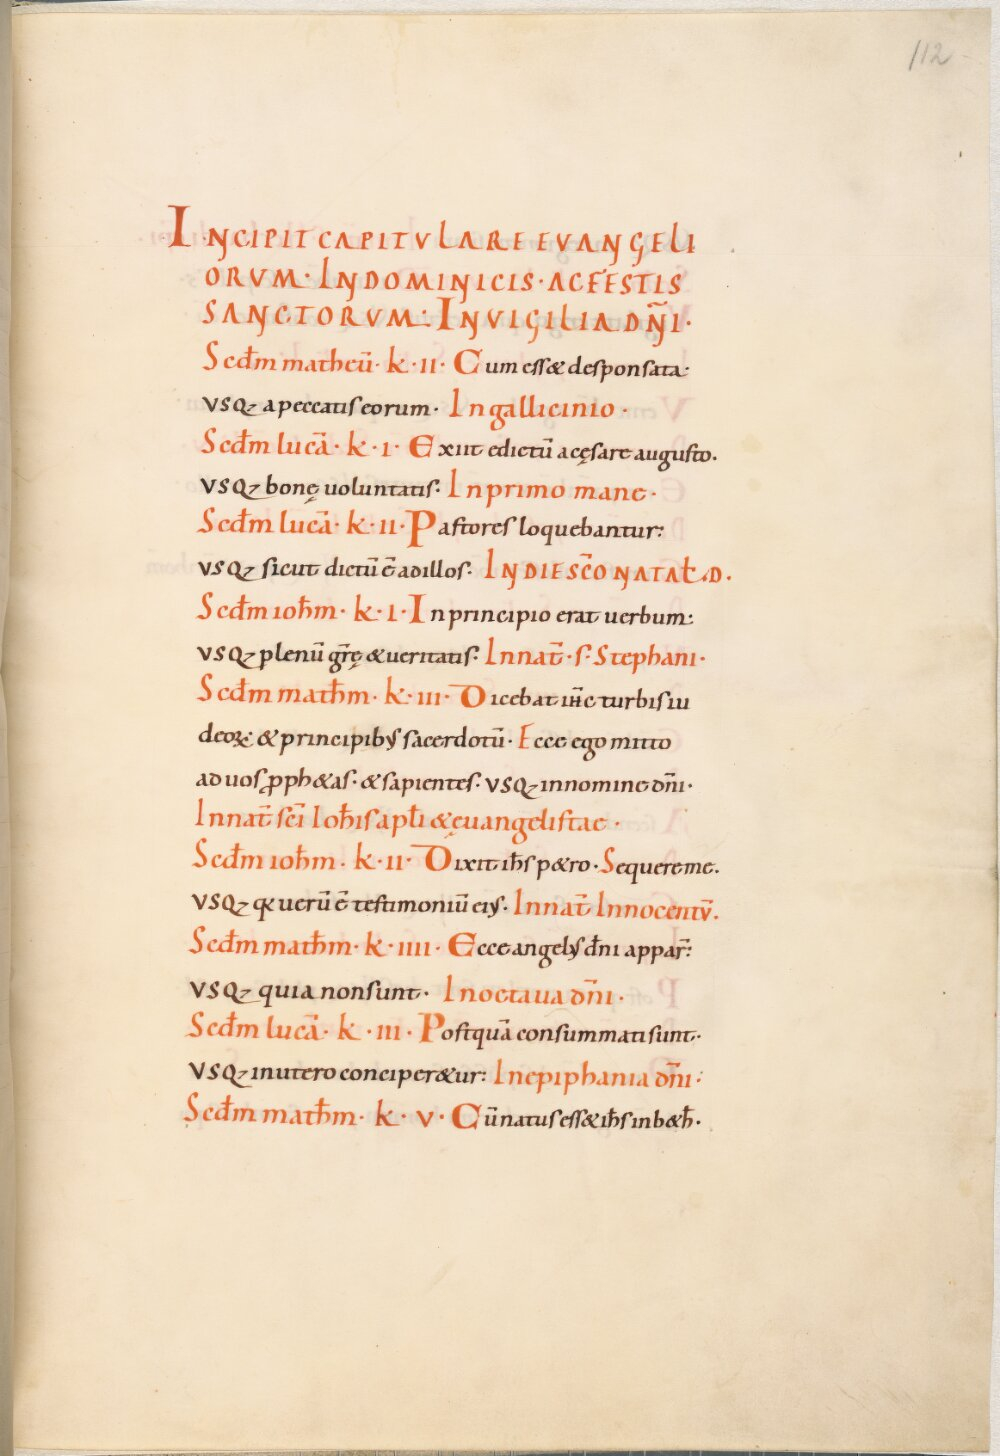 112
INCIPIT CAPITVLARE EVANGELI
ORVM· INDOMINICIS· AC FESTIS
SANCTORVM· IN VIGILIA DN̄I·
Scd̄m matheū· k· II· Cum ess& desponsata·
VSQ; apeccatis eorum· In gallicinio·
Scd̄m lucā· k· I· Exiit edictū a cęsare augusto.
VSQ; bonę uoluntatis· In primo mane·
Scd̄m lucā· k· II· Pastores loquebantur:
VSQ; sicut dictū ē ad illos· IN DIE SC̄O NATAL̄·D·
Scd̄m ioh̄m· k· I· In principio erat uerbum:
VSQ; plenū gr̄ę & ueritatis· In nat̄· s· Stephani·
Scd̄m math̄m· k· III· Dicebat ih̄c turbis iu
deoꝝ· & principibꝰ sacerdotū· Ecce ego mitto
ad uos ꝓph&as· & sapientes· VSQ; in nomine dn̄i·
In nat̄ sc̄i Ioh̄is apl̄i & ęuangelistae·
Scd̄m ioh̄m· k· II· Dixit ih̄s p&ro· Sequere me.
VSQ; qꝛ uerū ē testimoniū eiꝰ· In nat̄ Innocentū·
Scd̄m math̄m· k· IIII· Ecce angelꝰ dn̄i appar̄:
VSQ; quia non sunt· In octaua dn̄i·
Scd̄m lucā· k· III· Postquā consummati sunt·
VSQ; in utero conciper&ur: In epiphania dn̄i:
Scd̄m math̄m· k· V· Cū natus ess& ih̄s in b&h̄·